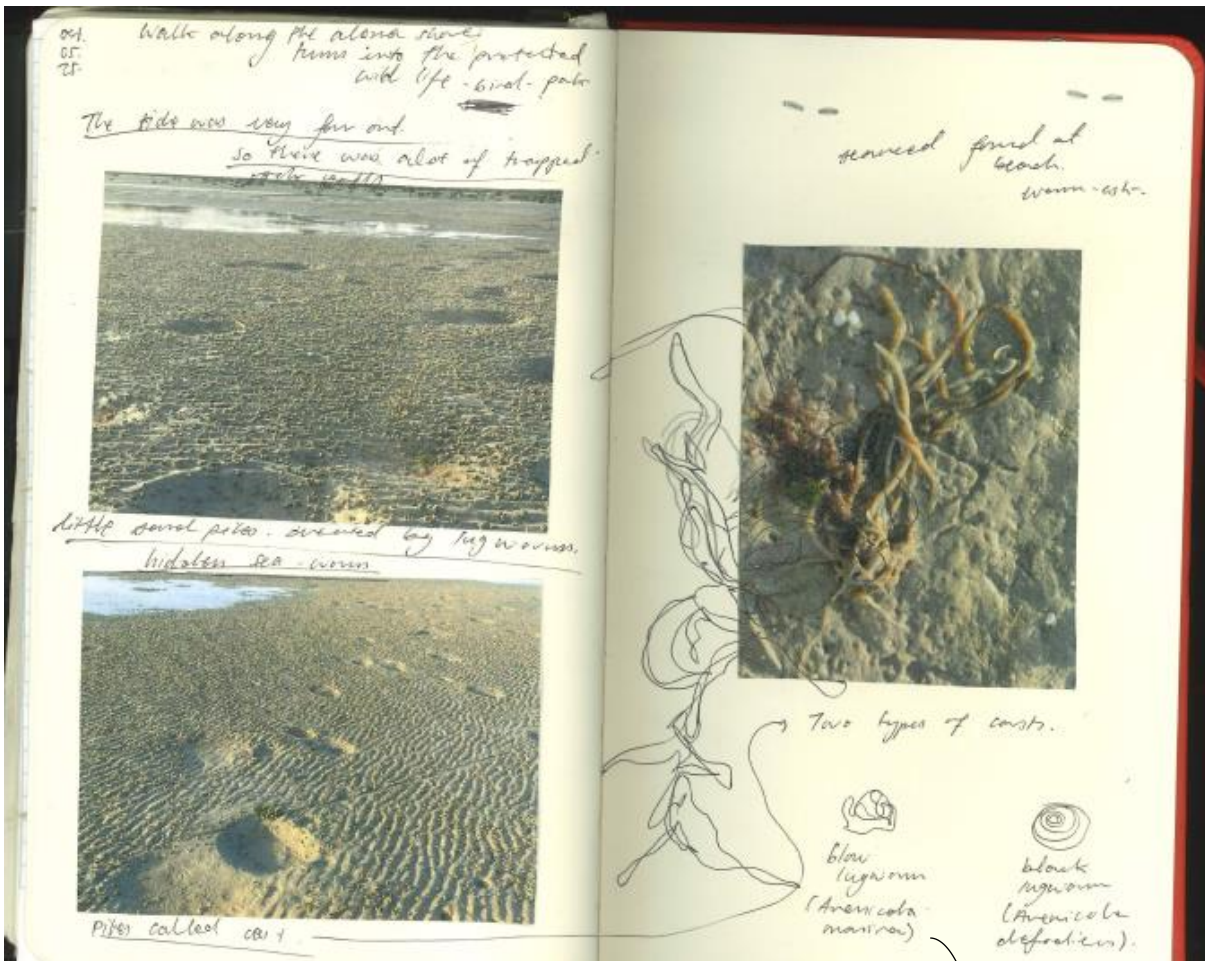 04.
05.
25.
Walk along the alona shore
turns into the protected
wild life - bird - park
The tide was very far out.
so there was alot of trapped
little sand piles. created by lugworms.
hidden sea-worm
Piles called cast.
seaweed found at
beach.
worm-esk-
Two types of casts.
blow
lugworm
(Arenicola
marina)
black
lugworm
(Arenicola
defodiens).